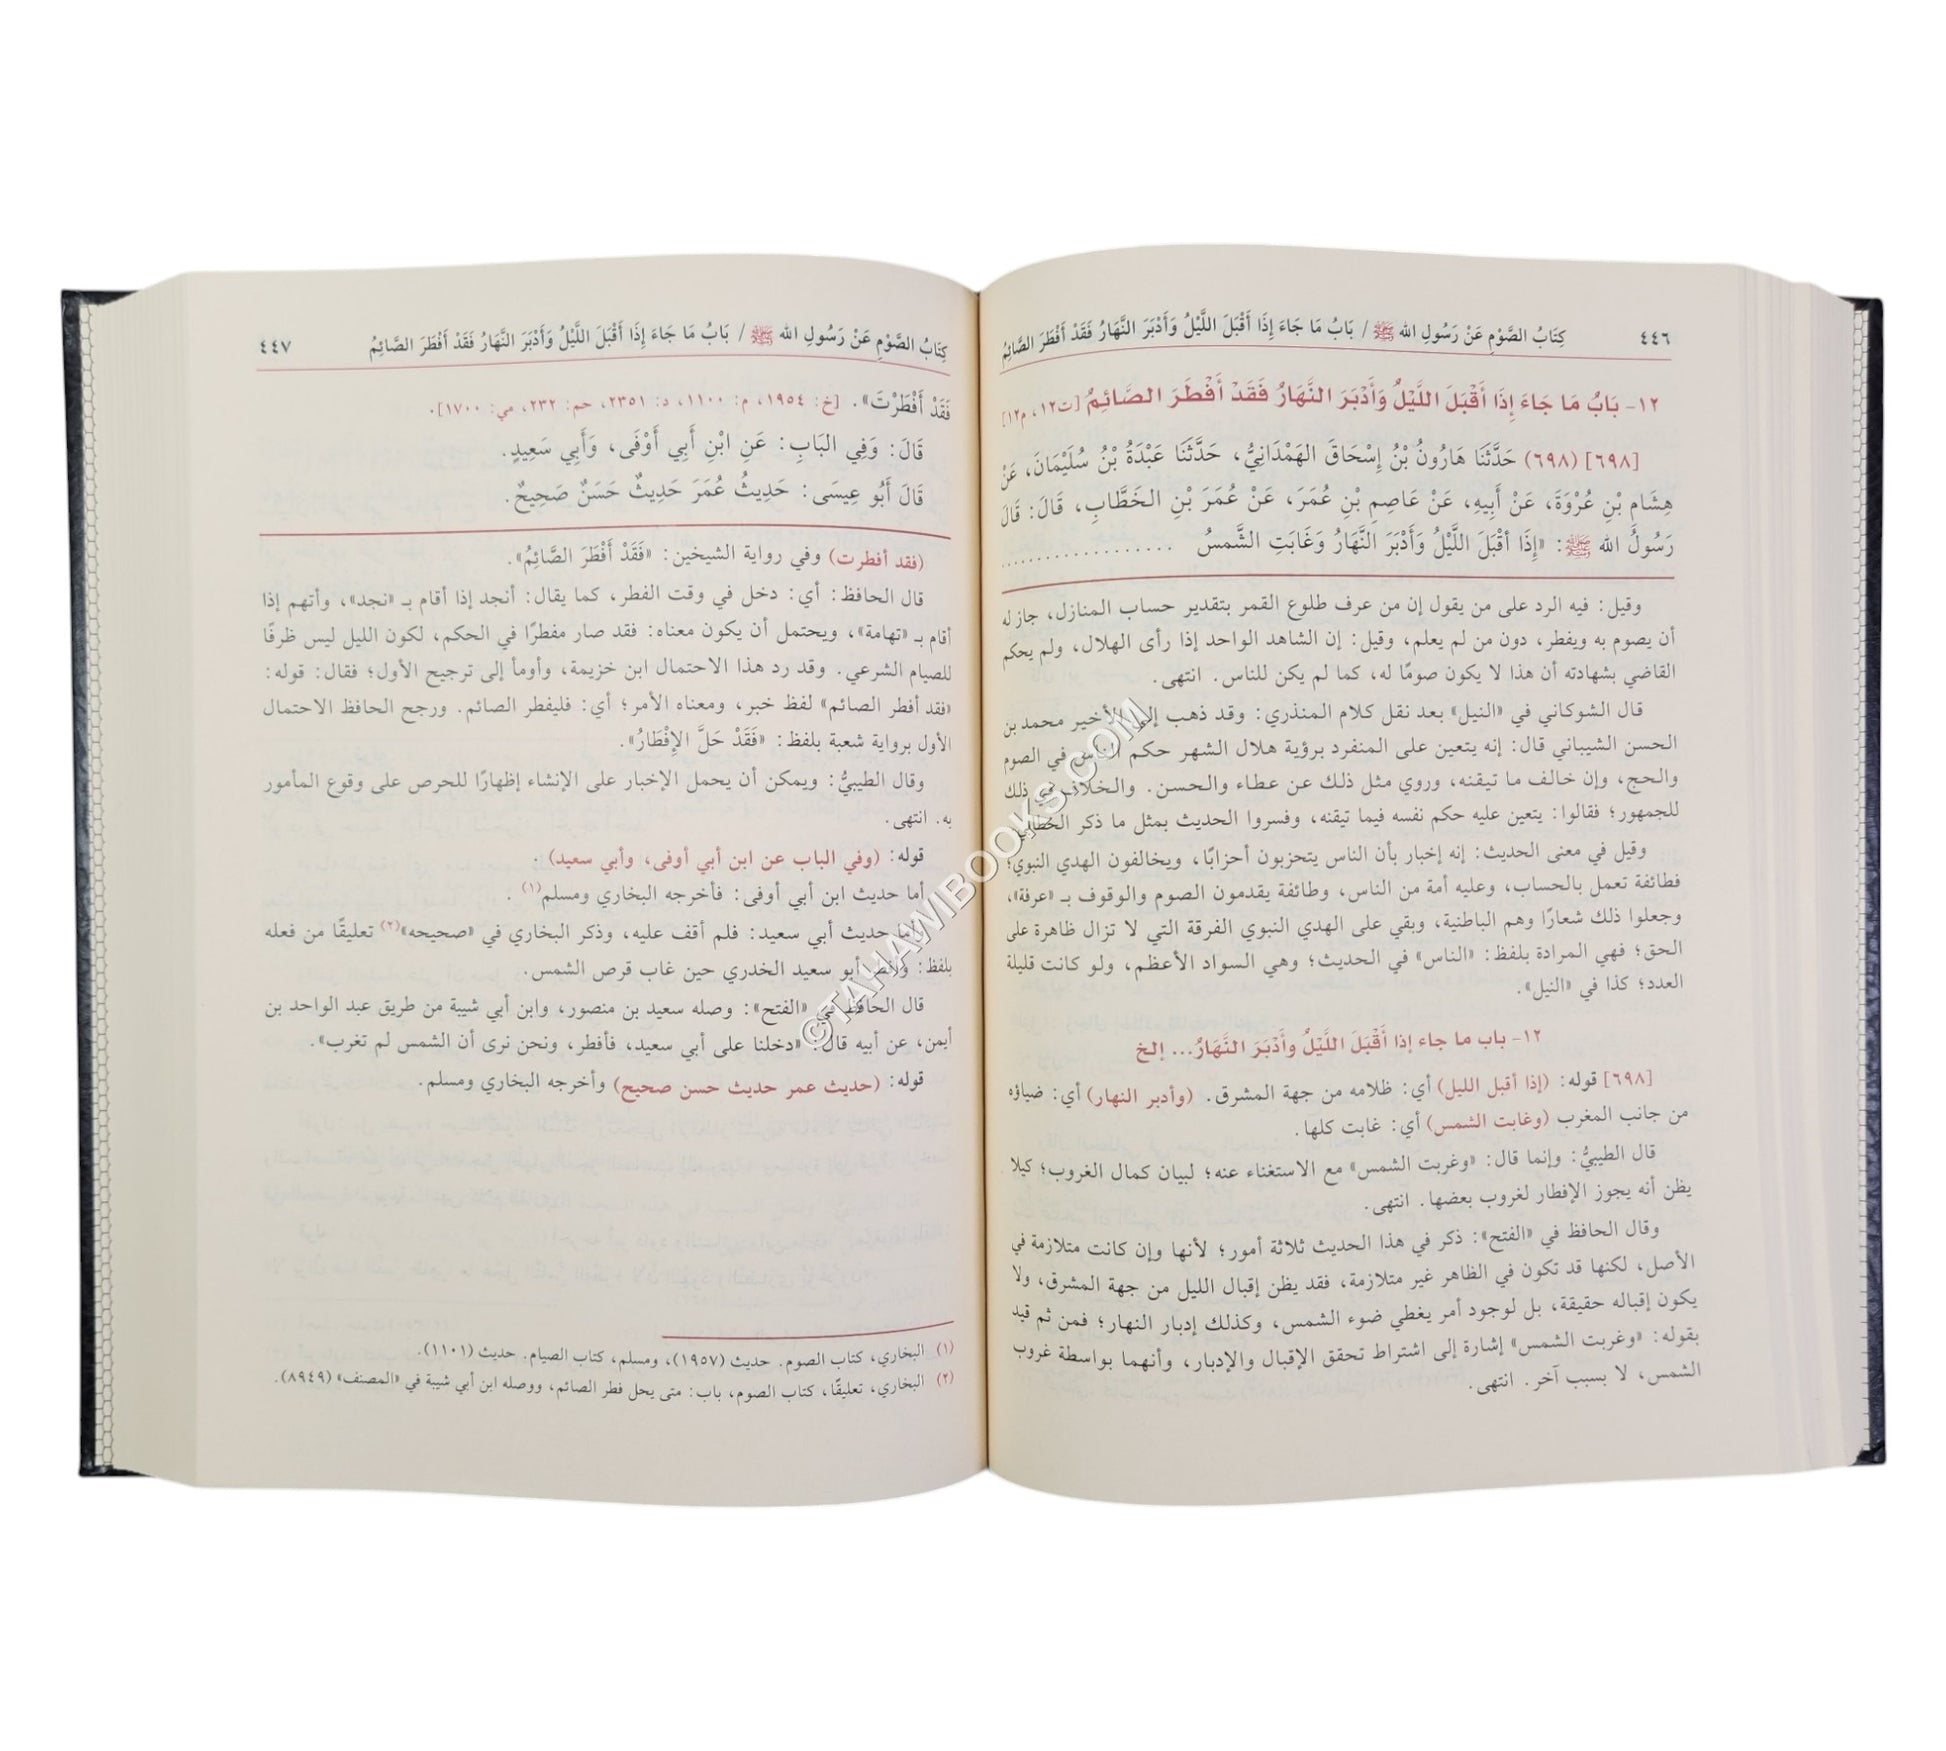 ٤٤٦ كِتَابُ الصَّوْمِ عَنْ رَسُولِ الله ﷺ / بَابُ مَا جَاءَ إِذَا أَقْبَلَ اللَّيْلُ وَأَدْبَرَ النَّهَارُ فَقَدْ أَفْطَرَ الصَّائِمُ
١٢- بَابُ مَا جَاءَ إِذَا أَقْبَلَ اللَّيْلُ وَأَدْبَرَ النَّهَارُ فَقَدْ أَفْطَرَ الصَّائِمُ [ت١٢، م١٢]
[٦٩٨] (٦٩٨) حَدَّثَنَا هَارُونُ بْنُ إِسْحَاقَ الهَمْدَانِيُّ، حَدَّثَنَا عَبْدَةُ بْنُ سُلَيْمَانَ، عَنْ
هِشَامِ بْنِ عُرْوَةَ، عَنْ أَبِيهِ، عَنْ عَاصِمِ بْنِ عُمَرَ، عَنْ عُمَرَ بْنِ الخَطَّابِ، قَالَ: قَالَ
رَسُولُ الله ﷺ: «إِذَا أَقْبَلَ اللَّيْلُ وَأَدْبَرَ النَّهَارُ وَغَابَتِ الشَّمسُ ..................
وقيل: فيه الرد على من يقول إن من عرف طلوع القمر بتقدير حساب المنازل، جاز له
أن يصوم به ويفطر، دون من لم يعلم، وقيل: إن الشاهد الواحد إذا رأى الهلال، ولم يحكم
القاضي بشهادته أن هذا لا يكون صومًا له، كما لم يكن للناس. انتهى.
قال الشوكاني في «النيل» بعد نقل كلام المنذري: وقد ذهب إلى الأخير محمد بن
الحسن الشيباني قال: إنه يتعين على المنفرد برؤية هلال الشهر حكم الناس في الصوم
والحج، وإن خالف ما تيقنه، وروي مثل ذلك عن عطاء والحسن. والخلاف في ذلك
للجمهور؛ فقالوا: يتعين عليه حكم نفسه فيما تيقنه، وفسروا الحديث بمثل ما ذكر الخطابي.
وقيل في معنى الحديث: إنه إخبار بأن الناس يتحزبون أحزابًا، ويخالفون الهدي النبوي؛
فطائفة تعمل بالحساب، وعليه أمة من الناس، وطائفة يقدمون الصوم والوقوف بـ «عرفة»،
وجعلوا ذلك شعارًا وهم الباطنية، وبقي على الهدي النبوي الفرقة التي لا تزال ظاهرة على
الحق؛ فهي المرادة بلفظ: «الناس» في الحديث؛ وهي السواد الأعظم، ولو كانت قليلة
العدد؛ كذا في «النيل».
١٢- باب ما جاء إذا أَقْبَلَ اللَّيْلُ وأَدْبَرَ النَّهَارُ... إلخ
[٦٩٨] قوله: (إذا أقبل الليل) أي: ظلامه من جهة المشرق. (وأدبر النهار) أي: ضياؤه
من جانب المغرب (وغابت الشمس) أي: غابت كلها.
قال الطيبيُّ: وإنما قال: «وغربت الشمس» مع الاستغناء عنه؛ لبيان كمال الغروب؛ كيلا
يظن أنه يجوز الإفطار لغروب بعضها. انتهى.
وقال الحافظ في «الفتح»: ذكر في هذا الحديث ثلاثة أمور؛ لأنها وإن كانت متلازمة في
الأصل، لكنها قد تكون في الظاهر غير متلازمة، فقد يظن إقبال الليل من جهة المشرق، ولا
يكون إقباله حقيقة، بل لوجود أمر يغطي ضوء الشمس، وكذلك إدبار النهار؛ فمن ثم قيد
بقوله: «وغربت الشمس» إشارة إلى اشتراط تحقق الإقبال والإدبار، وأنهما بواسطة غروب
الشمس، لا بسبب آخر. انتهى.
كِتَابُ الصَّوْمِ عَنْ رَسُولِ الله ﷺ / بَابُ مَا جَاءَ إِذَا أَقْبَلَ اللَّيْلُ وَأَدْبَرَ النَّهَارُ فَقَدْ أَفْطَرَ الصَّائِمُ ٤٤٧
فَقَدْ أَفْطَرْتَ». [خ: ١٩٥٤، م: ١١٠٠، د: ٢٣٥١، حم: ٢٣٢، مي: ١٧٠٠].
قَالَ: وَفِي البَابِ: عَنِ ابْنِ أَبِي أَوْفَى، وَأَبِي سَعِيدٍ.
قَالَ أَبُو عِيسَى: حَدِيثُ عُمَرَ حَدِيثٌ حَسَنٌ صَحِيحٌ.
(فقد أفطرت) وفي رواية الشيخين: «فَقَدْ أَفْطَرَ الصَّائِمُ».
قال الحافظ: أي: دخل في وقت الفطر، كما يقال: أنجد إذا أقام بـ «نجد»، وأتهم إذا
أقام بـ «تهامة»، ويحتمل أن يكون معناه: فقد صار مفطرًا في الحكم، لكون الليل ليس ظرفًا
للصيام الشرعي. وقد رد هذا الاحتمال ابن خزيمة، وأومأ إلى ترجيح الأول؛ فقال: قوله:
«فقد أفطر الصائم» لفظ خبر، ومعناه الأمر؛ أي: فليفطر الصائم. ورجح الحافظ الاحتمال
الأول برواية شعبة بلفظ: «فَقَدْ حَلَّ الإِفْطَارُ».
وقال الطيبيُّ: ويمكن أن يحمل الإخبار على الإنشاء إظهارًا للحرص على وقوع المأمور
به. انتهى.
قوله: (وفي الباب عن ابن أبي أوفى، وأبي سعيد).
أما حديث ابن أبي أوفى: فأخرجه البخاري ومسلم(١).
وأما حديث أبي سعيد: فلم أقف عليه، وذكر البخاري في «صحيحه»(٢) تعليقًا من فعله
بلفظ: وأفطر أبو سعيد الخدري حين غاب قرص الشمس.
قال الحافظ في «الفتح»: وصله سعيد بن منصور، وابن أبي شيبة من طريق عبد الواحد بن
أيمن، عن أبيه قال: «دخلنا على أبي سعيد، فأفطر، ونحن نرى أن الشمس لم تغرب».
قوله: (حديث عمر حديث حسن صحيح) وأخرجه البخاري ومسلم.
(١) البخاري، كتاب الصوم. حديث (١٩٥٧)، ومسلم، كتاب الصيام. حديث (١١٠١).
(٢) البخاري، تعليقًا، كتاب الصوم، باب: متى يحل فطر الصائم، ووصله ابن أبي شيبة في «المصنف» (٨٩٤٩).
©TAHAWIBOOKS.COM